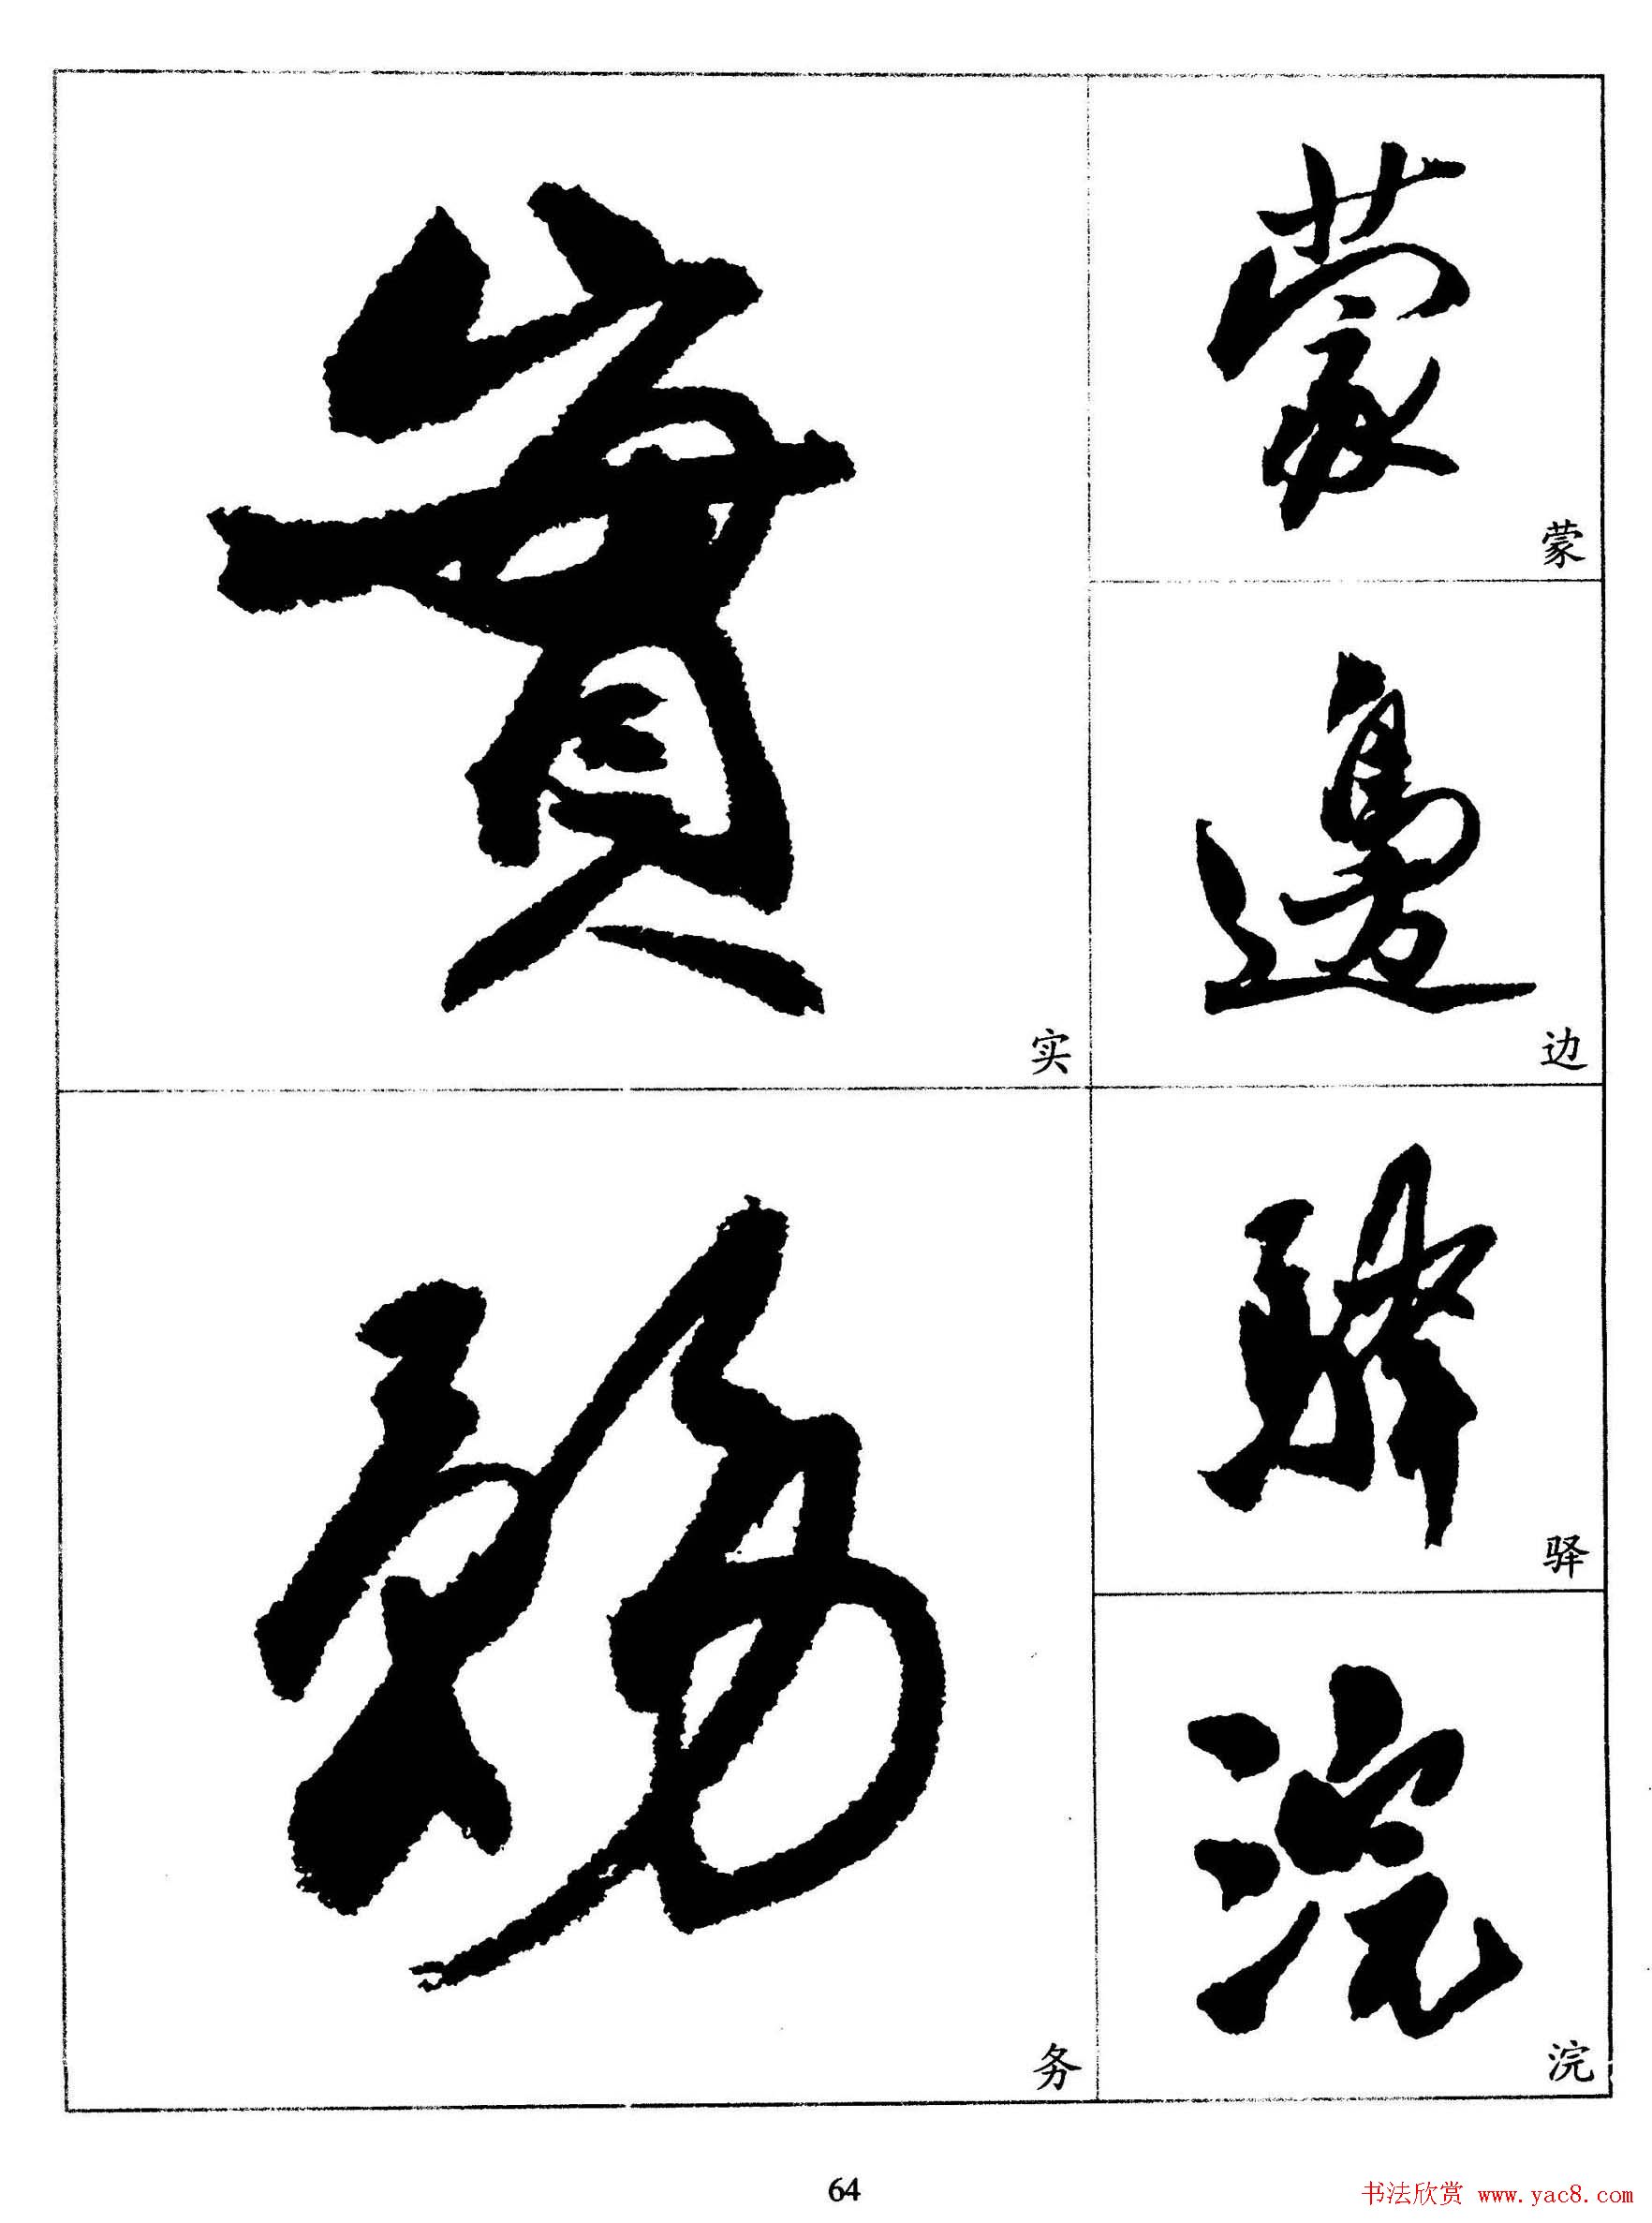 蒙
蒙
邊
边
驛
驿
浣
浣
實
实
務
务
64
书法欣赏 www.yac8.com